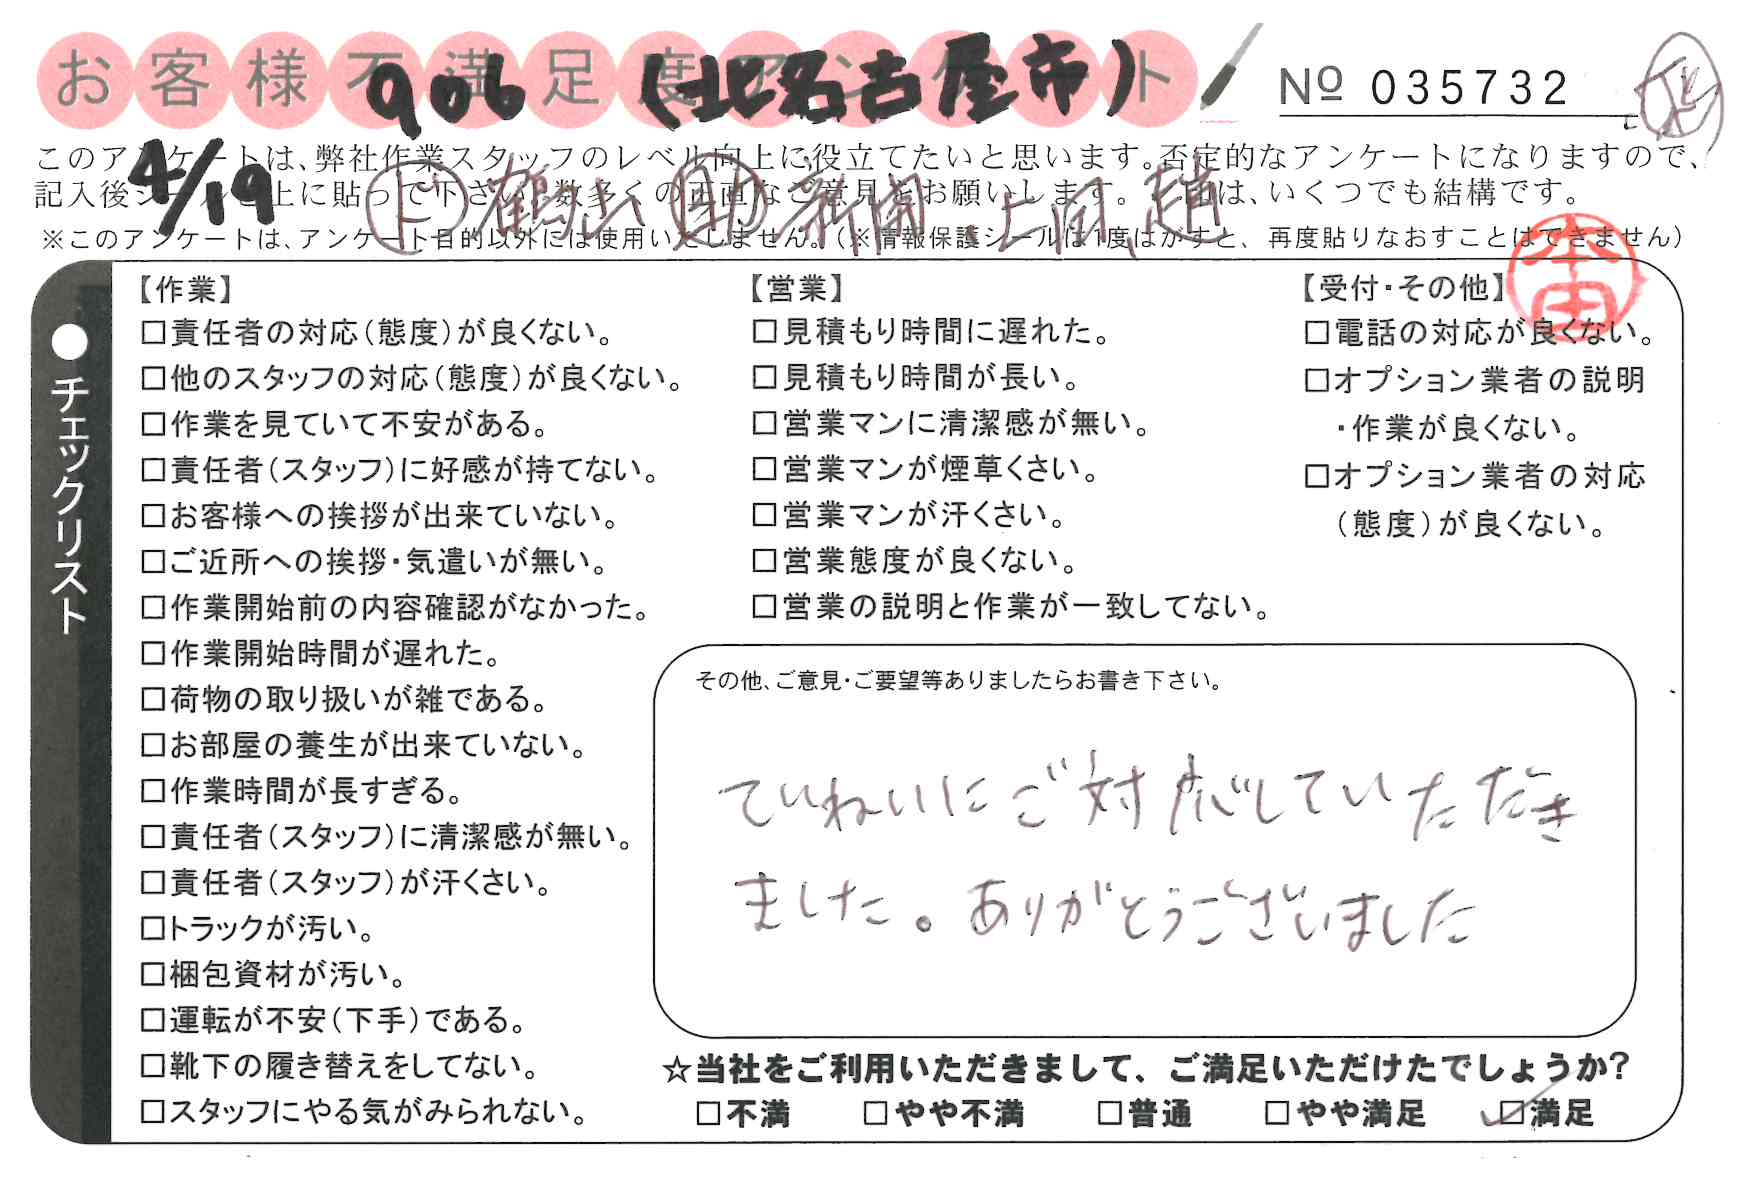 お客様不満足度アンケート
906 (北名古屋市)
№ 035732
4/19
このアンケートは、弊社作業スタッフのレベル向上に役立てたいと思います。否定的なアンケートになりますので、
記入後シールを上に貼って下さい。数多くの正直なご意見をお願いします。✓印は、いくつでも結構です。
※このアンケートは、アンケート目的以外には使用いたしません。(※情報保護シールは1度はがすと、再度貼りなおすことはできません)
本田
●チェックリスト
【作業】
□責任者の対応(態度)が良くない。
□他のスタッフの対応(態度)が良くない。
□作業を見ていて不安がある。
□責任者(スタッフ)に好感が持てない。
□お客様への挨拶が出来ていない。
□ご近所への挨拶・気遣いが無い。
□作業開始前の内容確認がなかった。
□作業開始時間が遅れた。
□荷物の取り扱いが雑である。
□お部屋の養生が出来ていない。
□作業時間が長すぎる。
□責任者(スタッフ)に清潔感が無い。
□責任者(スタッフ)が汗くさい。
□トラックが汚い。
□梱包資材が汚い。
□運転が不安(下手)である。
□靴下の履き替えをしてない。
□スタッフにやる気がみられない。
【営業】
□見積もり時間に遅れた。
□見積もり時間が長い。
□営業マンに清潔感が無い。
□営業マンが煙草くさい。
□営業マンが汗くさい。
□営業態度が良くない。
□営業の説明と作業が一致してない。
【受付・その他】
□電話の対応が良くない。
□オプション業者の説明
・作業が良くない。
□オプション業者の対応
(態度)が良くない。
その他、ご意見・ご要望等ありましたらお書き下さい。
ていねいにご対応していただき
ました。ありがとうございました
☆当社をご利用いただきまして、ご満足いただけたでしょうか?
□不満 □やや不満 □普通 □やや満足 ☑満足